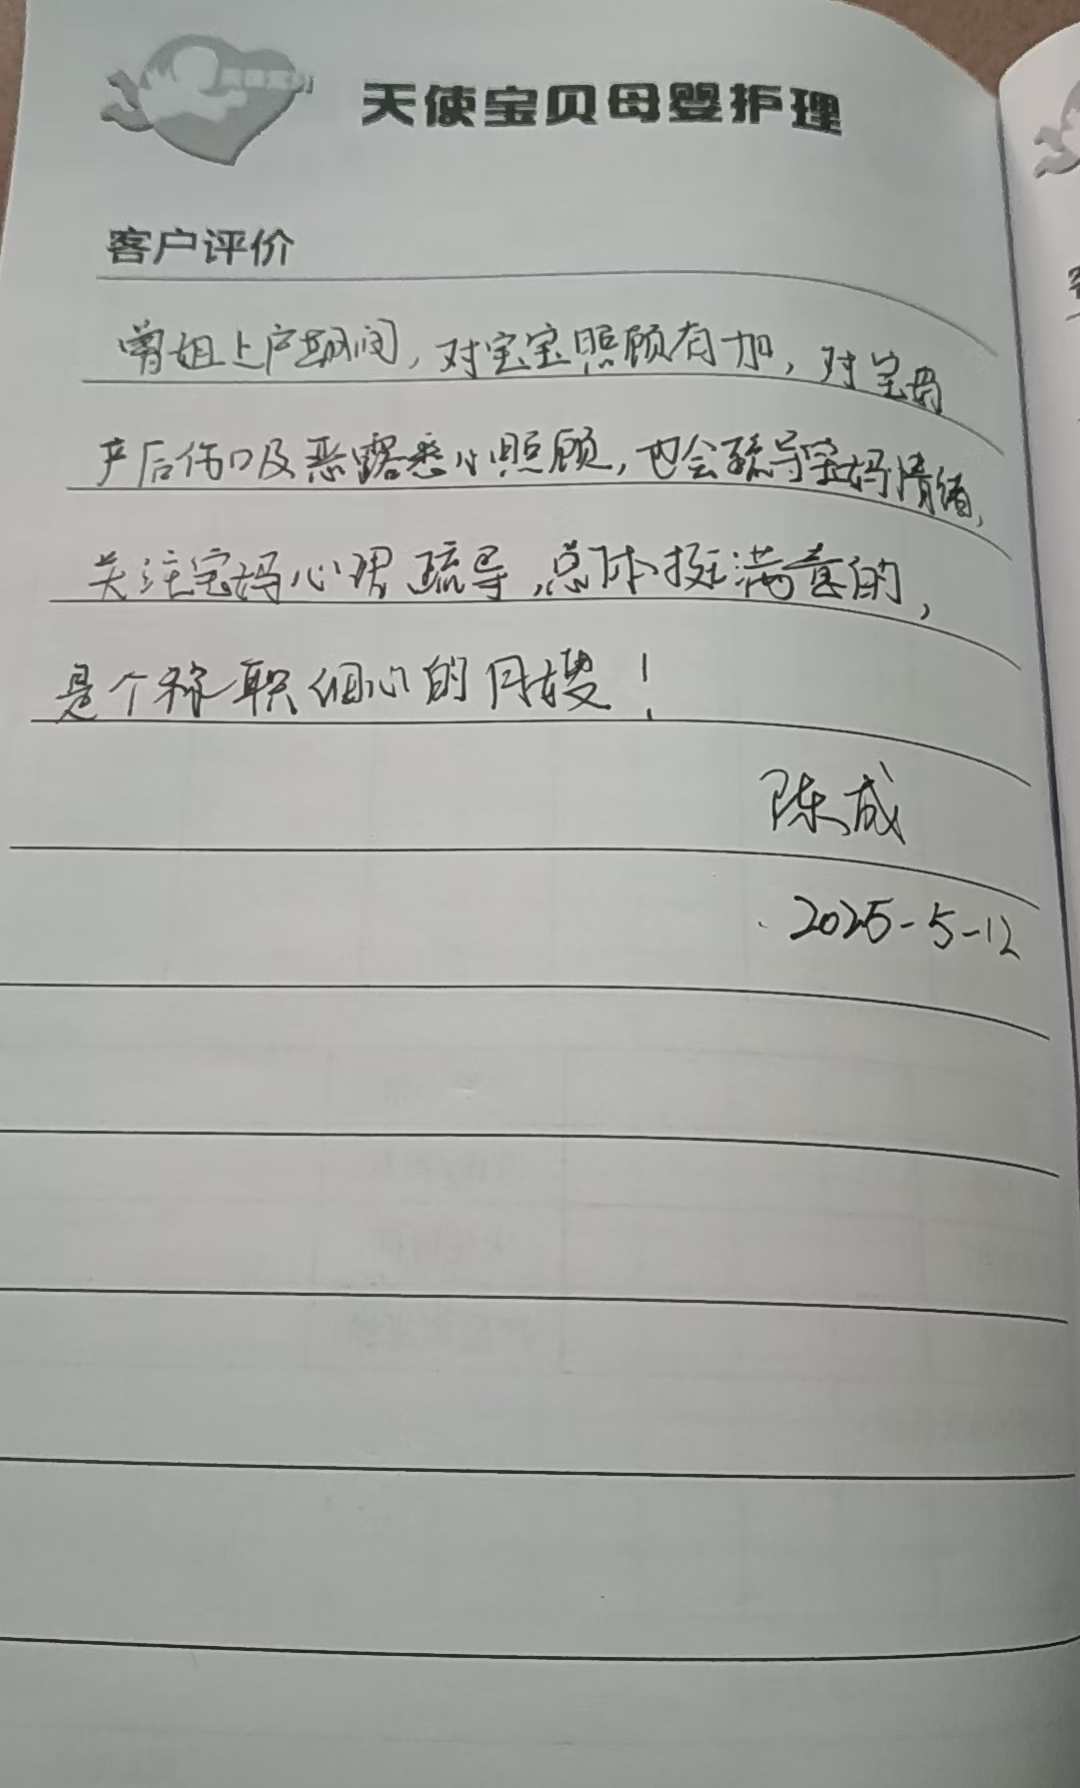 天使宝贝
天使宝贝母婴护理
客户评价
曾姐上户期间，对宝宝照顾有加，对宝妈
产后伤口及恶露悉心照顾，也会疏导宝妈情绪，
关注宝妈心理疏导，总体挺满意的，
是个称职细心的月嫂！
陈成
2025-5-12